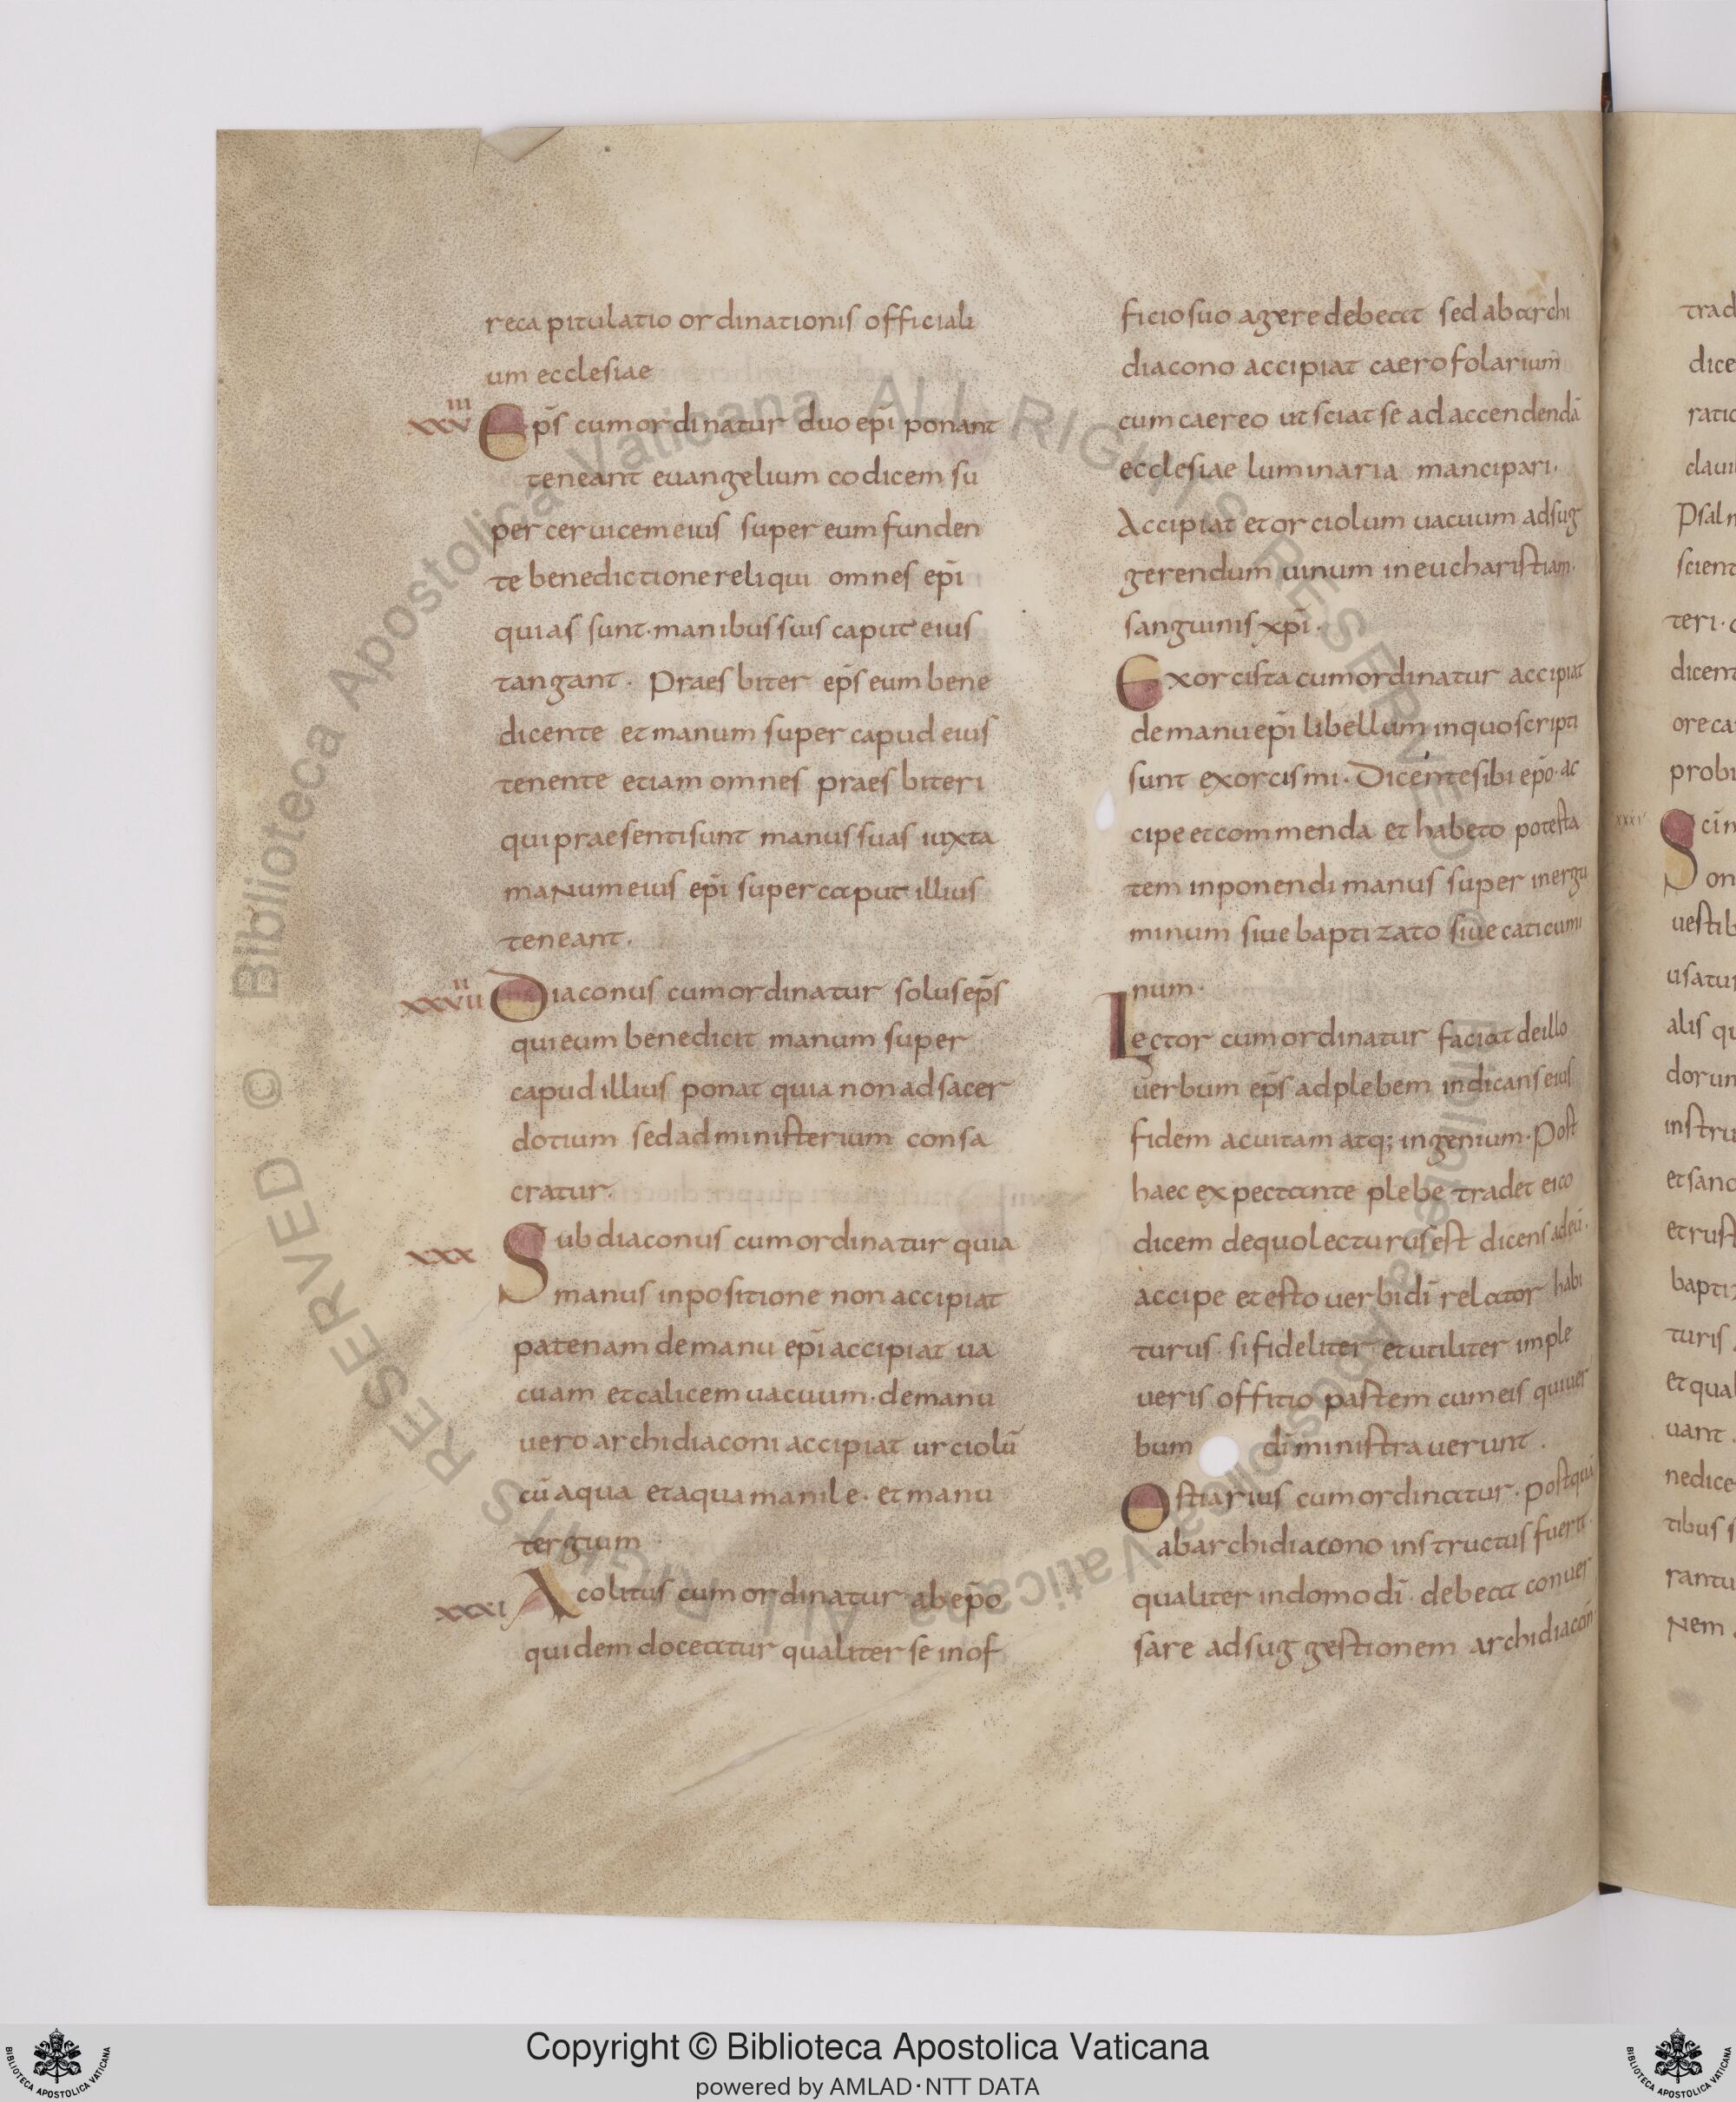 recapitulatio ordinationis officiali
um ecclesiae
xxviii Ep̄s cum ordinatur duo epī ponant
teneant euangelium codicem su
per ceruicem eius super eum funden
te benedictione reliqui omnes epī
quias sunt · manibus suis caput eius
tangant · Praesbiter ep̄s eum bene
dicente et manum super capud eius
tenente etiam omnes praesbiteri
qui praesenti sunt manus suas iuxta
maNum eius epī super caput illius
teneant ·
Diaconus cum ordinatur solus ep̄s
qui eum benedicit manum super
capud illius ponat quia non ad sacer
dotium sed ad ministerium consa
cratur ·
xxx Subdiaconus cum ordinatur quia
manus inpositione non accipiat
patenam de manu epī accipiat ua
cuam et calicem uacuum · de manu
uero archidiaconi accipiat urciolū
cū aqua et aquamanile · et manu
tergium
xxxi Acolitus cum ordinatur ab ep̄o
quidem doceatur qualiter se in of
ficio suo agere debeat sed ab archi
diacono accipiat caerofolarium
cum caereo ut sciat se ad accendendā
ecclesiae luminaria mancipari ·
Accipiat et orciolum uacuum ad sug
gerendum uinum in eucharistiam
sanguinis xp̄i ·
Exorcista cum ordinatur accipiat
de manu epī libellum in quo scripti
sunt exorcismi · Dicente sibi ep̄o · ac
cipe et commenda et habeto potesta
tem inponendi manus super inergu
minum siue baptizato siue caticumi
num ·
Lector cum ordinatur faciat de illo
uerbum ep̄s ad plebem indicans eius
fidem ac uitam atq; ingenium · Post
haec expectante plebe tradet ei co
dicem de quo lecturus est dicens ad eū ·
accipe et esto uerbi dī relator habi
turus · si fideliter et utiliter imple
ueris offitio pastem cum eis qui uer
bum dī ministrauerunt ·
Ostiarius cum ordinatur · postquā
ab archidiacono instructus fuerit ·
qualiter in domo dī · debeat conuer
sare ad suggestionem archidiacōn
trad
dice
ratio
claui
Psalm
scient
teri ·
dicent
ore ca
probi
xxxi
on
uestib
usatur
alis qu
dorum
instru
et sanc
et rust
bapti
turis
et qual
uant ·
nedice
tibus s
rantu
Nem
Biblioteca Apostolica Vaticana ALL RIGHTS RESERVED ©
Biblioteca Apostolica Vaticana ALL RIGHTS RESERVED ©
Copyright © Biblioteca Apostolica Vaticana
powered by AMLAD·NTT DATA
BIBLIOTECA APOSTOLICA VATICANA
BIBLIOTECA APOSTOLICA VATICANA